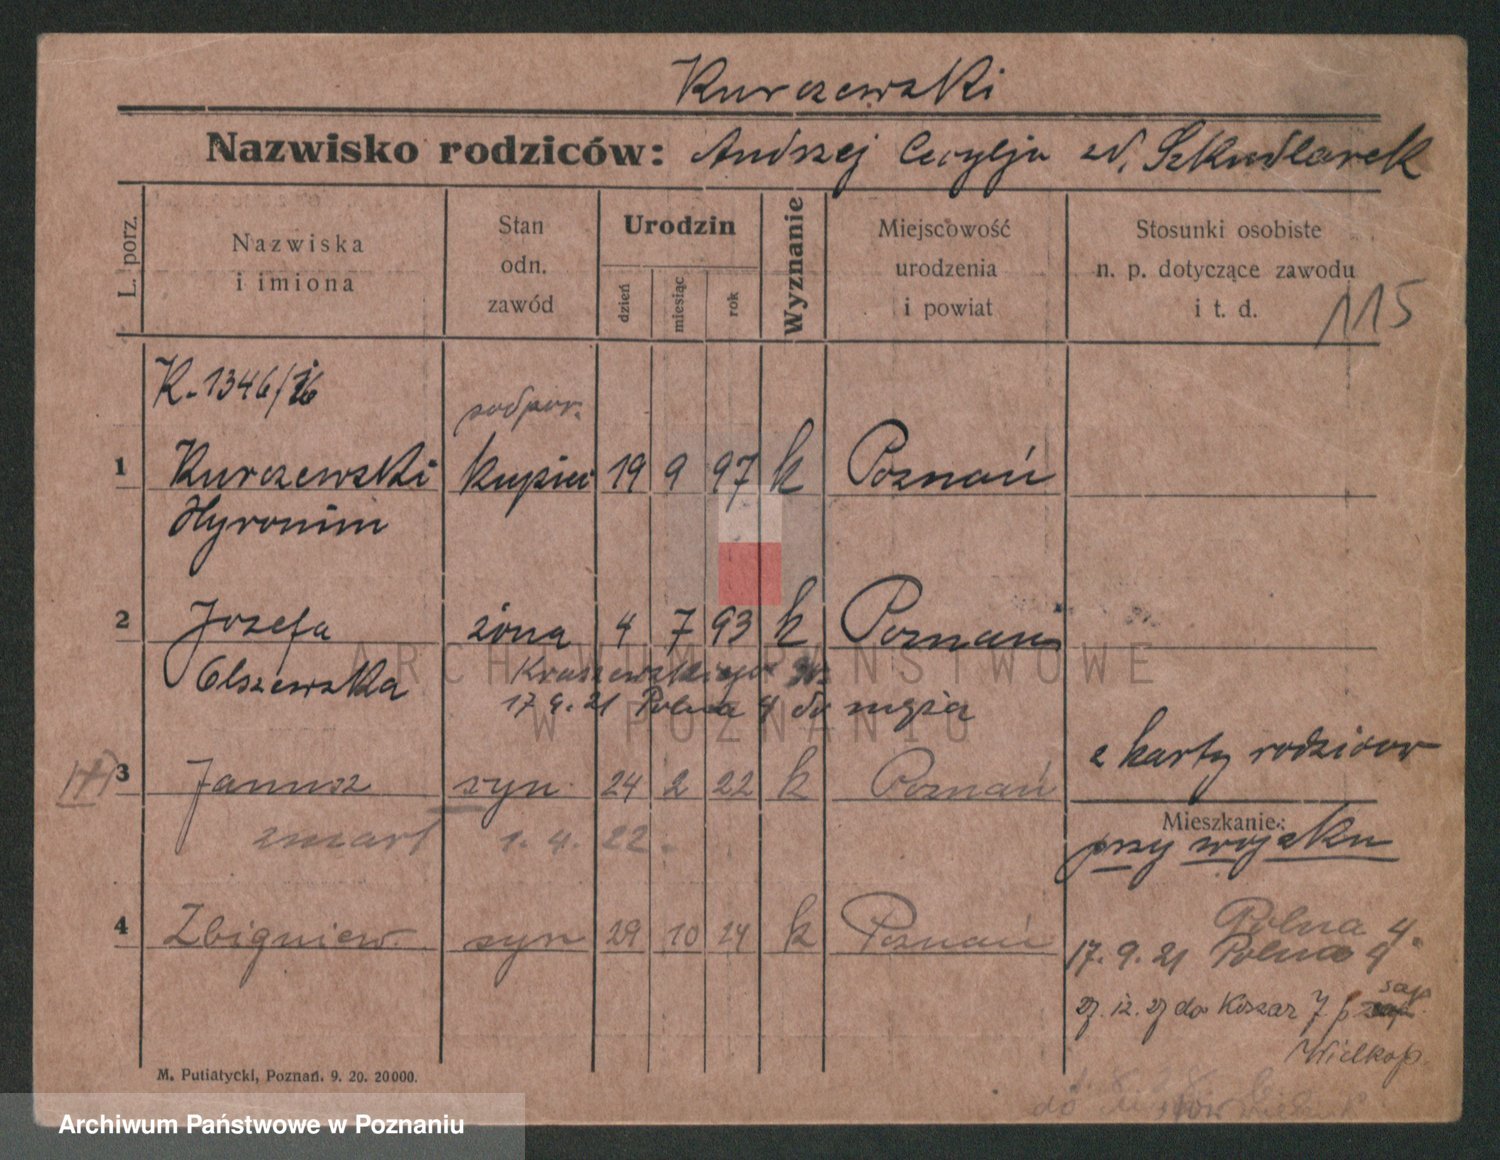 Kurczewski
Nazwisko rodziców: Andrzej Cecylja z d. Szkudlarek
L. porz.
Nazwiska
i imiona
Stan
odn.
zawód
Urodzin
dzień
miesiąc
rok
Wyznanie
Miejscowość
urodzenia
i powiat
Stosunki osobiste
n. p. dotyczące zawodu
i t. d.
115
K. 1346/16
podpor.
1 Kurczewski kupiec 19 9 97 k Poznań
Hyronim
2 Józefa żona 4 7 93 k Poznań
Olszewska Kraszewskiego
17.9.21 Polna 4 do męża
z karty rodziców
3 Janusz syn 24 2 22 k Poznań
zmarł 1.4.22.
Mieszkanie:
przy wojsku
4 Zbigniew syn 29 10 24 k Poznań
Polna 4.
17.9.21 Polna 4
27.12.27 do Koszar 7 p sap.
Wielkop.
M. Putiatycki, Poznań. 9. 20. 20000.
do
ARCHIWUM PAŃSTWOWE
W POZNANIU
Archiwum Państwowe w Poznaniu